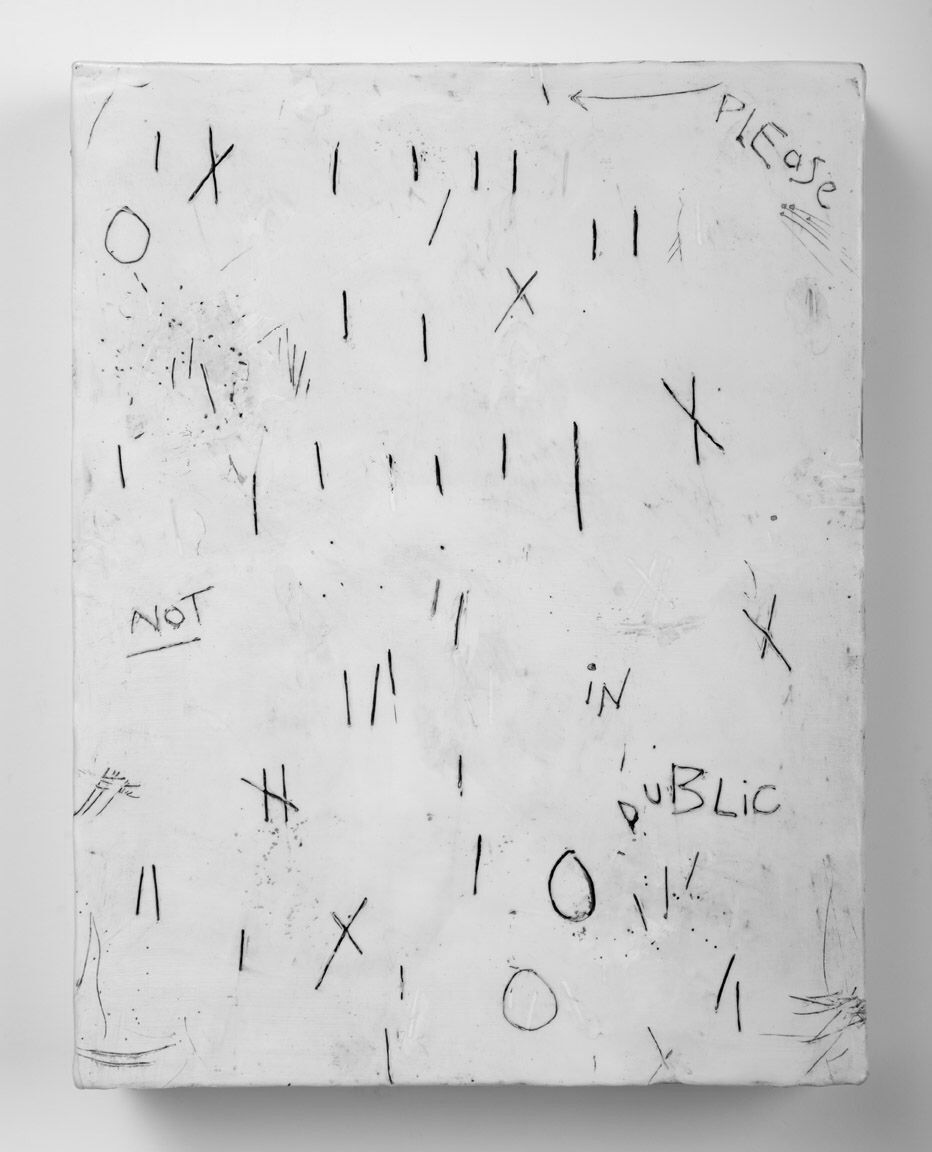 PLEase
NOT
iN
puBLic